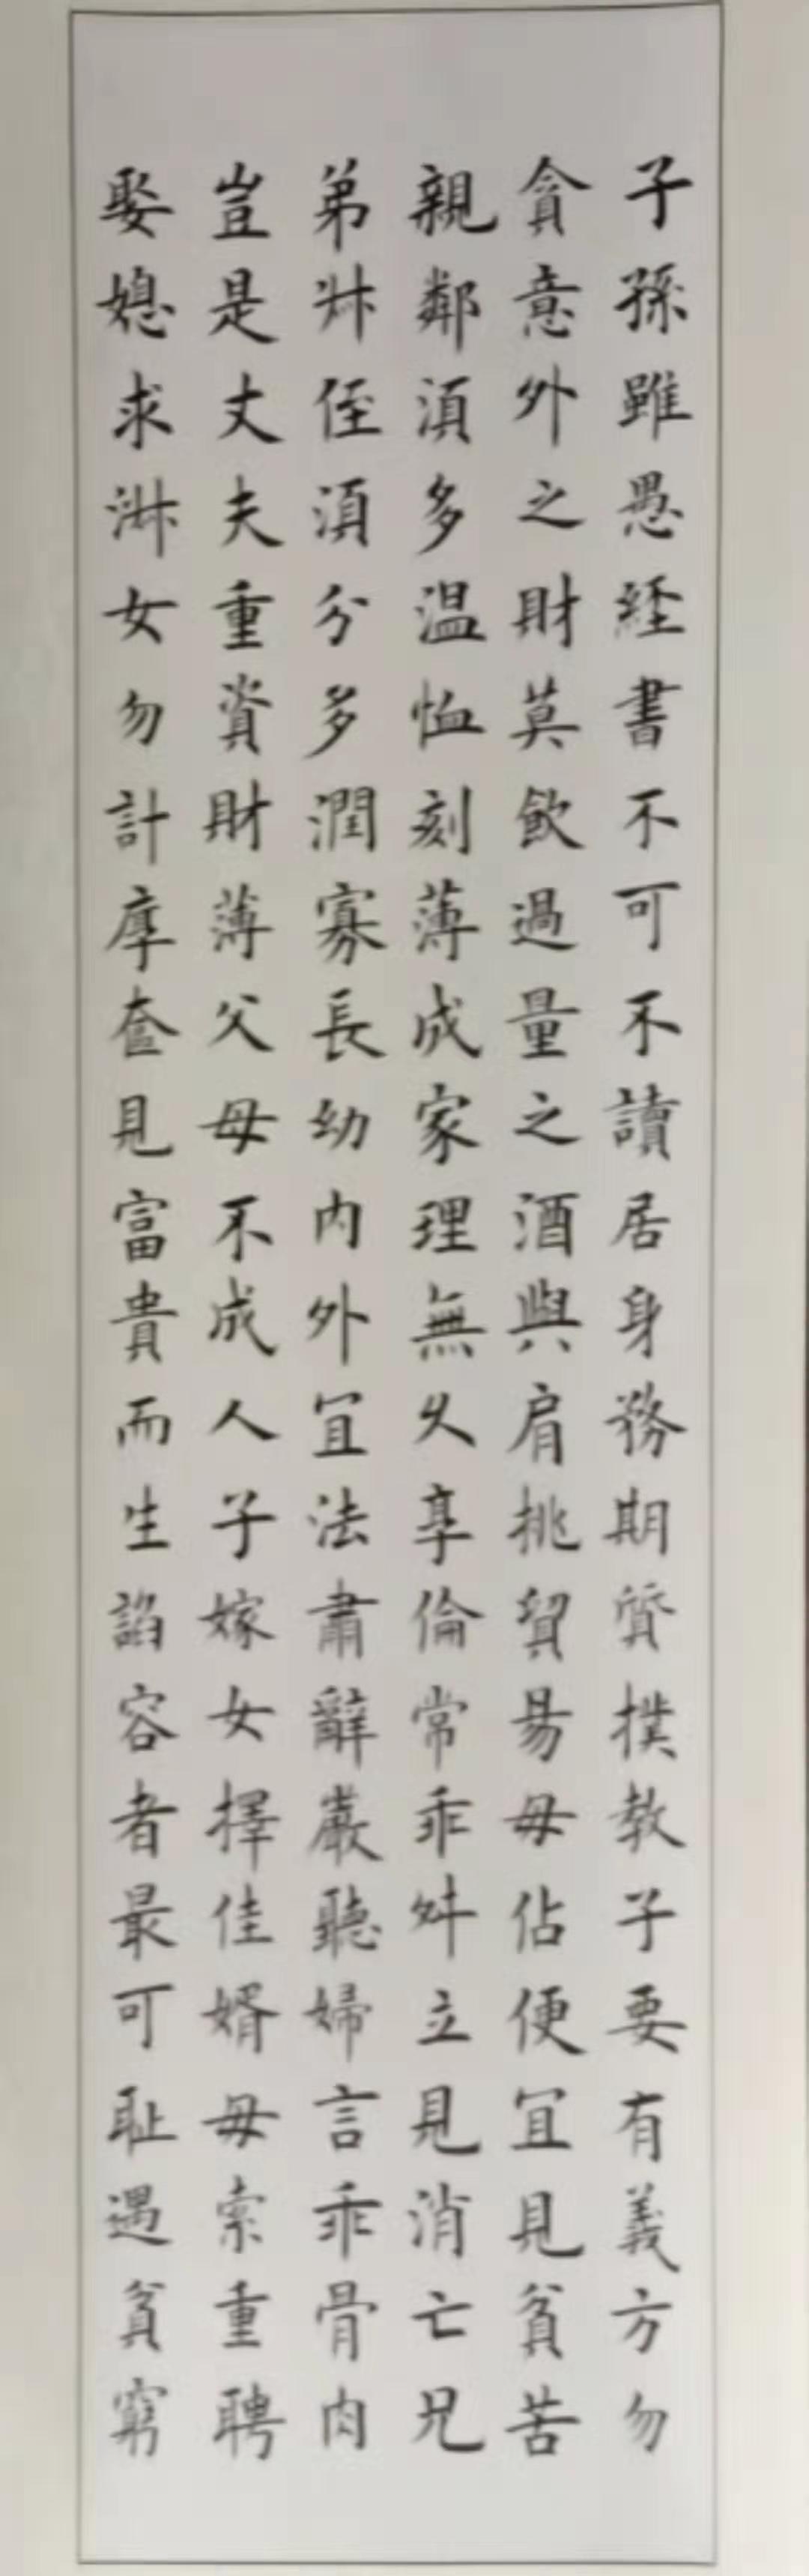 子孫雖愚經書不可不讀居身務期質樸教子要有義方勿
貪意外之財莫飲過量之酒與肩挑貿易毋佔便宜見貧苦
親鄰須多温恤刻薄成家理無久享倫常乖舛立見消亡兄
弟叔侄須分多潤寡長幼内外宜法肅辭嚴聽婦言乖骨肉
豈是丈夫重資財薄父母不成人子嫁女擇佳婿毋索重聘
娶媳求淑女勿計厚奩見富貴而生諂容者最可恥遇貧窮